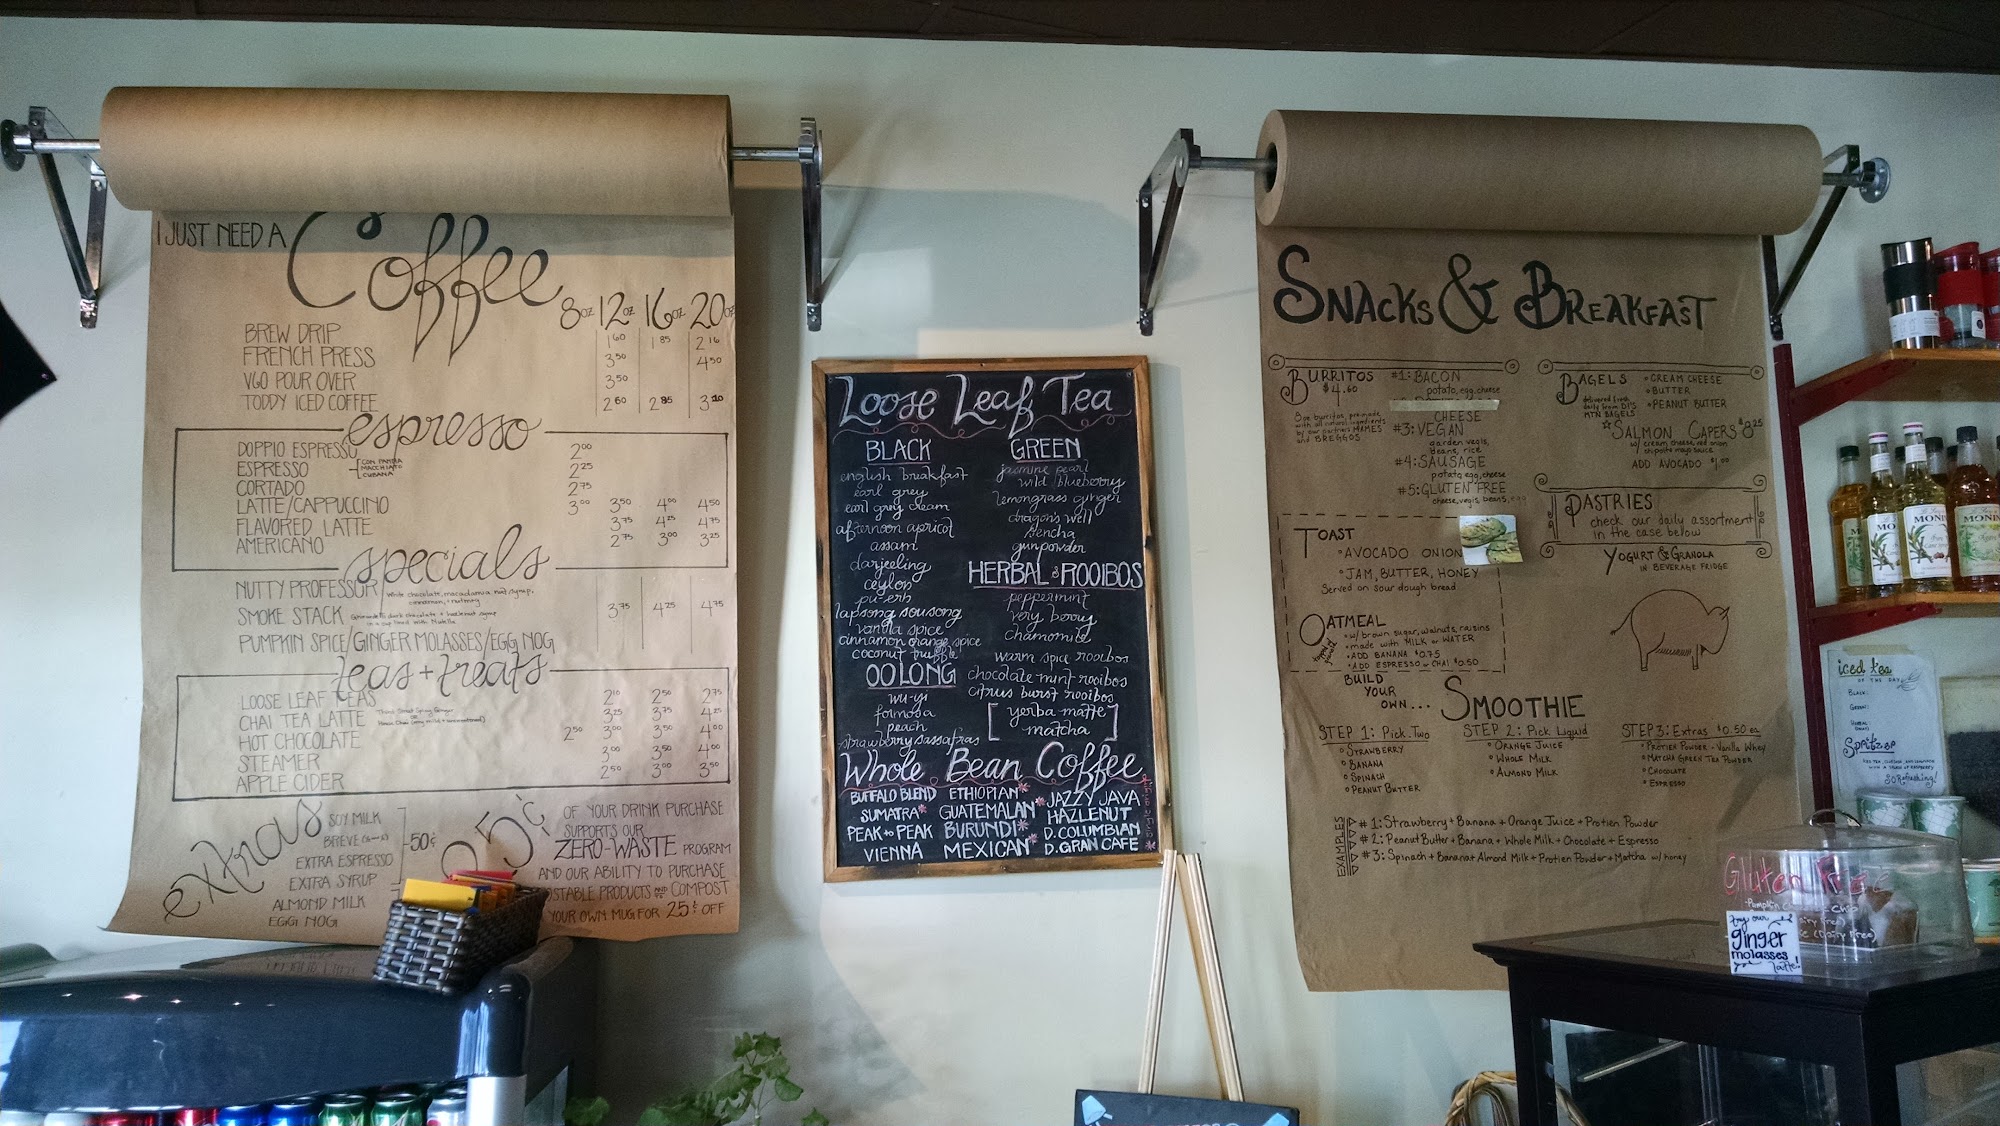 I JUST NEED A Coffee
8oz 12oz 16oz 20oz
BREW DRIP 1 60 1 85 2 16
FRENCH PRESS 3 50 4 50
V60 POUR OVER 3 50
TODDY ICED COFFEE 2 60 2 85 3 10
espresso
DOPPIO ESPRESSO 2 00
ESPRESSO [CON PANNA MACCHIATO CUBANA 2 25
CORTADO 2 75
LATTE/CAPPUCCINO 3 00 3 50 4 00 4 50
FLAVORED LATTE 3 75 4 25 4 75
AMERICANO 2 75 3 00 3 25
specials
NUTTY PROFESSOR White chocolate, macadamia nut syrup,
cinnamon, + nutmeg
SMOKE STACK dark chocolate + hazelnut syrup 3 75 4 25 4 75
in a cup lined with Nutella
PUMPKIN SPICE/GINGER MOLASSES/EGG NOG
teas + treats
LOOSE LEAF TEAS 2 10 2 50 2 75
CHAI TEA LATTE 3 25 3 75 4 25
HOT CHOCOLATE 2 50 3 00 3 50 4 00
STEAMER 3 00 3 50 4 00
APPLE CIDER 2 50 3 00 3 50
extras
SOY MILK
BREVE
EXTRA ESPRESSO
EXTRA SYRUP
ALMOND MILK
EGG NOG
50¢
25¢
OF YOUR DRINK PURCHASE
SUPPORTS OUR
ZERO-WASTE PROGRAM
AND OUR ABILITY TO PURCHASE
PRODUCTS COMPOST
YOUR OWN MUG FOR 25¢ OFF
Loose Leaf Tea
BLACK
english breakfast
earl grey
earl grey cream
afternoon apricot
assam
darjeeling
ceylon
pu-erh
lapsong sousong
vanilla spice
cinnamon orange spice
coconut truffle
OOLONG
wu-yi
formosa
peach
strawberry sassafras
GREEN
jasmine pearl
wild blueberry
lemongrass ginger
dragon's well
sencha
gunpowder
HERBAL & ROOIBOS
peppermint
very berry
chamomile
warm spice rooibos
chocolate mint rooibos
citrus burst rooibos
[yerba matte
matcha]
Whole Bean Coffee
BUFFALO BLEND ETHIOPIAN* JAZZY JAVA
SUMATRA* GUATEMALAN* HAZLENUT
PEAK to PEAK BURUNDI* D. COLUMBIAN
VIENNA MEXICAN* D. GRAN CAFE
* single origin
SNACKS & BREAKFAST
BURRITOS
$4.60
8oz burritos, pre-made
with all natural ingredients
by our partners MAMES
and BREGGOS
#1: BACON
potato, egg, cheese
CHEESE
#3: VEGAN
garden vegis,
beans, rice
#4: SAUSAGE
potato, egg, cheese
#5: GLUTEN FREE
cheese, vegis, beans, egg
BAGELS
delivered fresh
daily from DJ'S
MTN BAGELS
• CREAM CHEESE
• BUTTER
• PEANUT BUTTER
☆ SALMON CAPERS $8.25
w/ cream cheese, red onion
chipotle mayo sauce
ADD AVOCADO $1.00
PASTRIES
check our daily assortment
in the case below
YOGURT & GRANOLA
IN BEVERAGE FRIDGE
TOAST
• AVOCADO ONION
• JAM, BUTTER, HONEY
Served on sour dough bread
OATMEAL
• w/ brown sugar, walnuts, raisins
• made with MILK or WATER
• ADD BANANA $0.75
• ADD ESPRESSO or CHAI $0.50
BUILD
YOUR
OWN... SMOOTHIE
STEP 1: Pick Two
• STRAWBERRY
• BANANA
• SPINACH
• PEANUT BUTTER
STEP 2: Pick Liquid
• ORANGE JUICE
• WHOLE MILK
• ALMOND MILK
STEP 3: Extras $0.50 ea
• PROTIEN POWDER - Vanilla Whey
• MATCHA GREEN TEA POWDER
• CHOCOLATE
• ESPRESSO
EXAMPLES
#1: Strawberry + Banana + Orange Juice + Protien Powder
#2: Peanut Butter + Banana + Whole Milk + Chocolate + Espresso
#3: Spinach + Banana + Almond Milk + Protien Powder + Matcha w/ honey
MONIN
iced tea
OF THE DAY
BLACK:
GREEN:
HERBAL:
Spritzer
SO Refreshing!
Gluten Free
try our
ginger
molasses
latte!